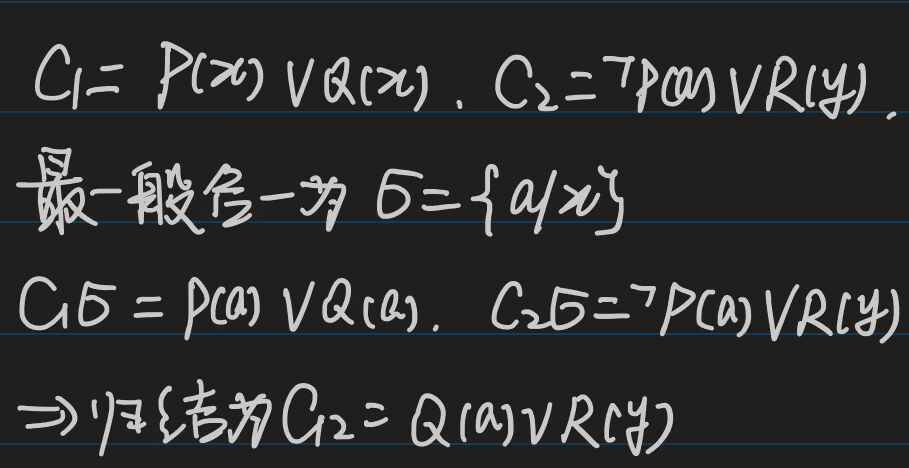 C₁= P(x) ∨ Q(x). C₂=¬P(a) ∨ R(y).
最一般合一为 σ={a/x}
C₁σ = P(a) ∨ Q(a). C₂σ=¬P(a) ∨ R(y)
⇒归结为 C₁₂= Q(a) ∨ R(y)